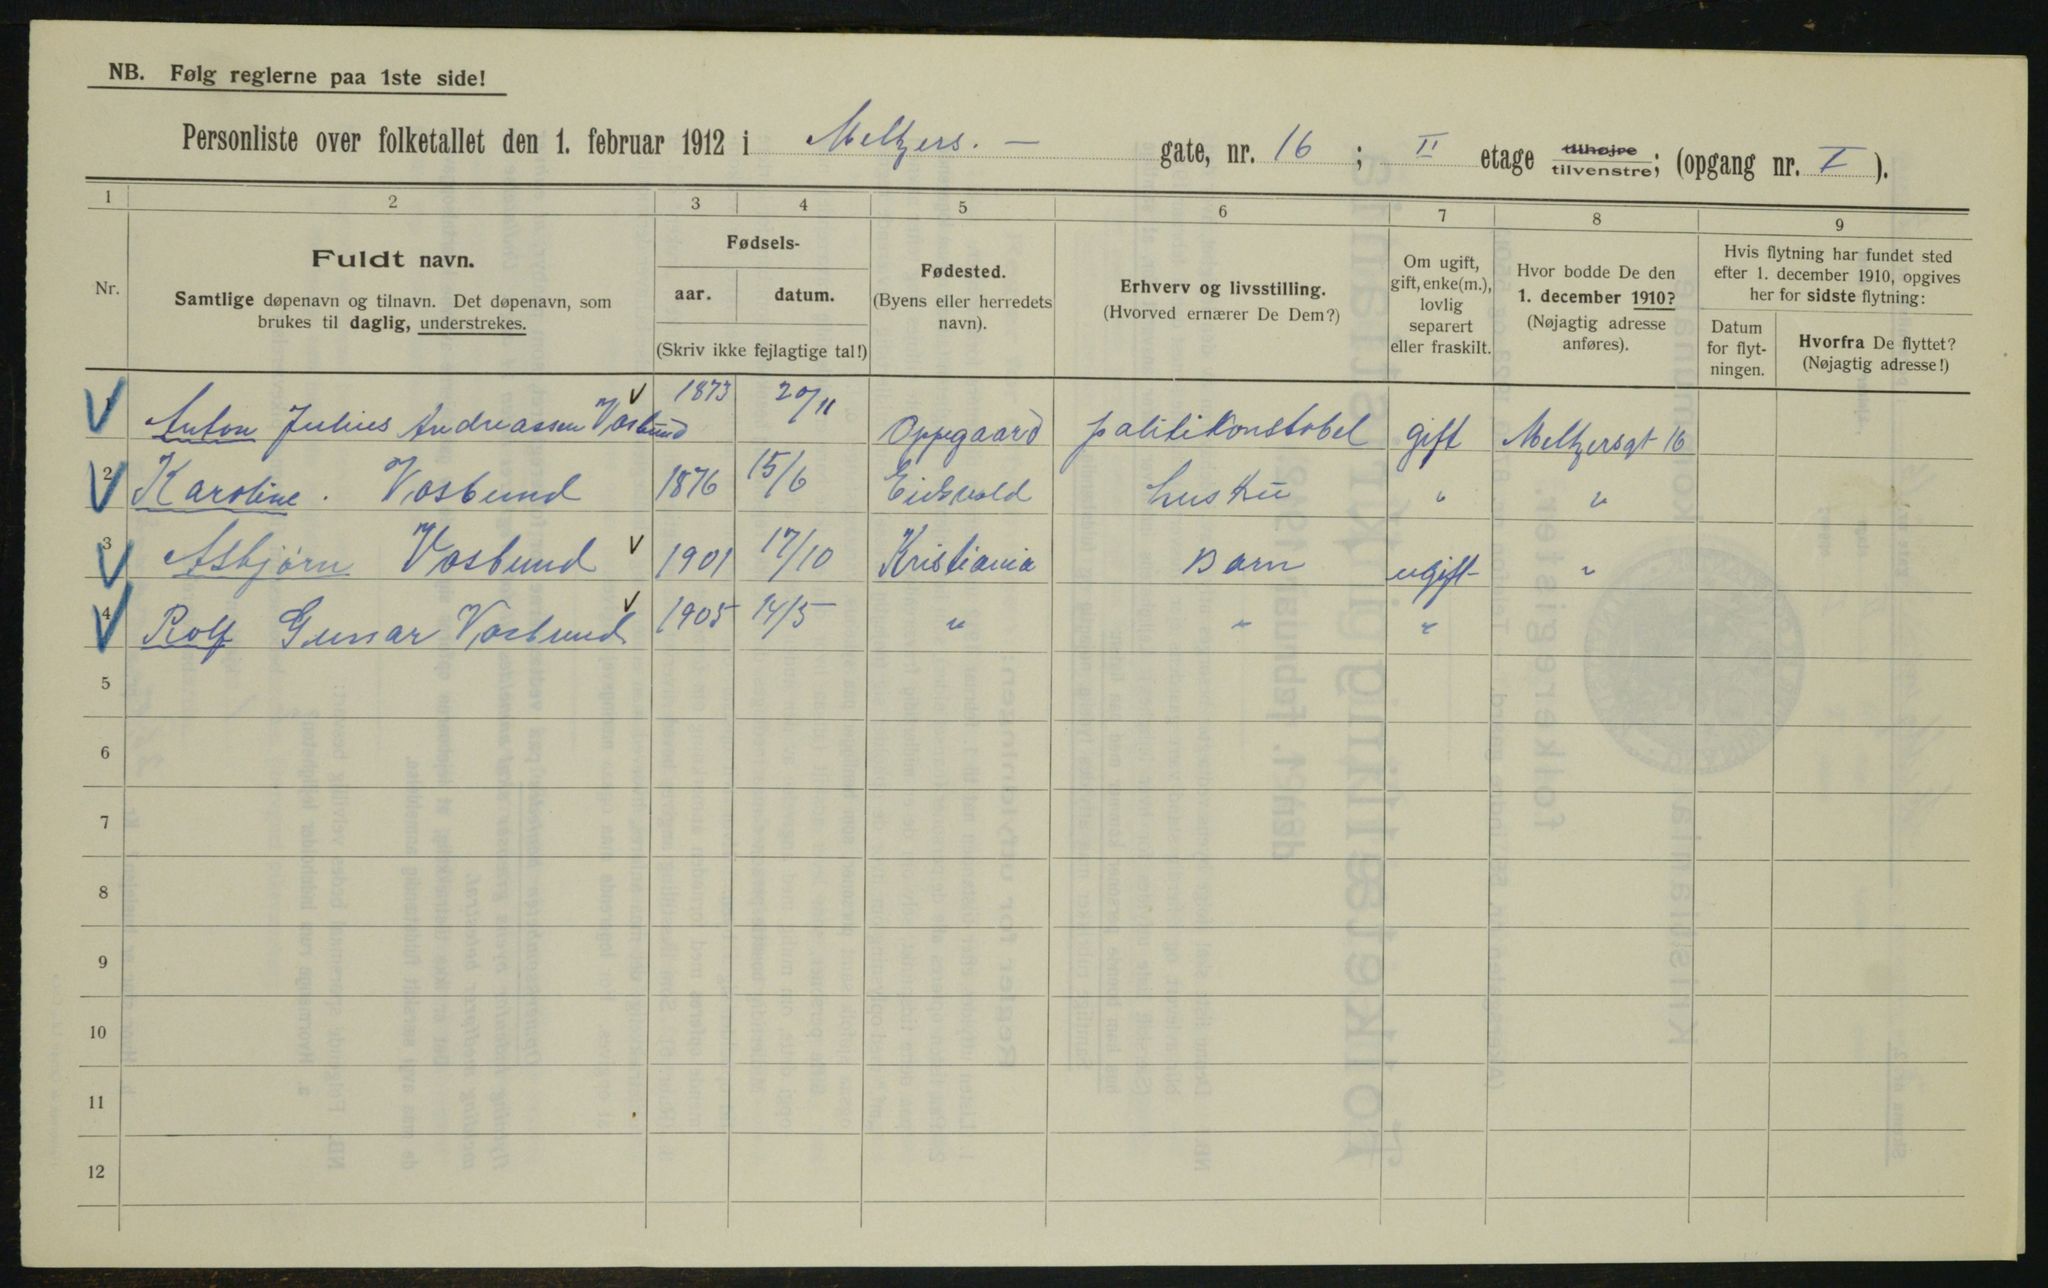 NB. Følg reglerne paa 1ste side!
Personliste over folketallet den 1. februar 1912 i Meltzers. — gate, nr. 16 ; II etage tilhøjre/tilvenstre; (opgang nr. I ).
1 2 3 4 5 6 7 8 9
Nr.
Fuldt navn.
Samtlige døpenavn og tilnavn. Det døpenavn, som
brukes til daglig, understrekes.
Fødsels-
aar. datum.
(Skriv ikke fejlagtige tal!)
Fødested.
(Byens eller herredets
navn).
Erhverv og livsstilling.
(Hvorved ernærer De Dem?)
Om ugift,
gift, enke(m.),
lovlig
separert
eller fraskilt.
Hvor bodde De den
1. december 1910?
(Nøjagtig adresse
anføres).
Hvis flytning har fundet sted
efter 1. december 1910, opgives
her for sidste flytning:
Datum
for flyt-
ningen.
Hvorfra De flyttet?
(Nøjagtig adresse!)
1 Anton Julius Andreassen Vosbund 1873 20/11 Oppegaard politikonstabel gift Meltzersgt 16
2 Karoline . Vosbund 1876 15/6 Eidsvold hustru " "
3 Asbjørn Vosbund 1901 17/10 Kristiania Barn ugift "
4 Rolf Gunnar Vosbund 1905 14/5 " " "
5
6
7
8
9
10
11
12